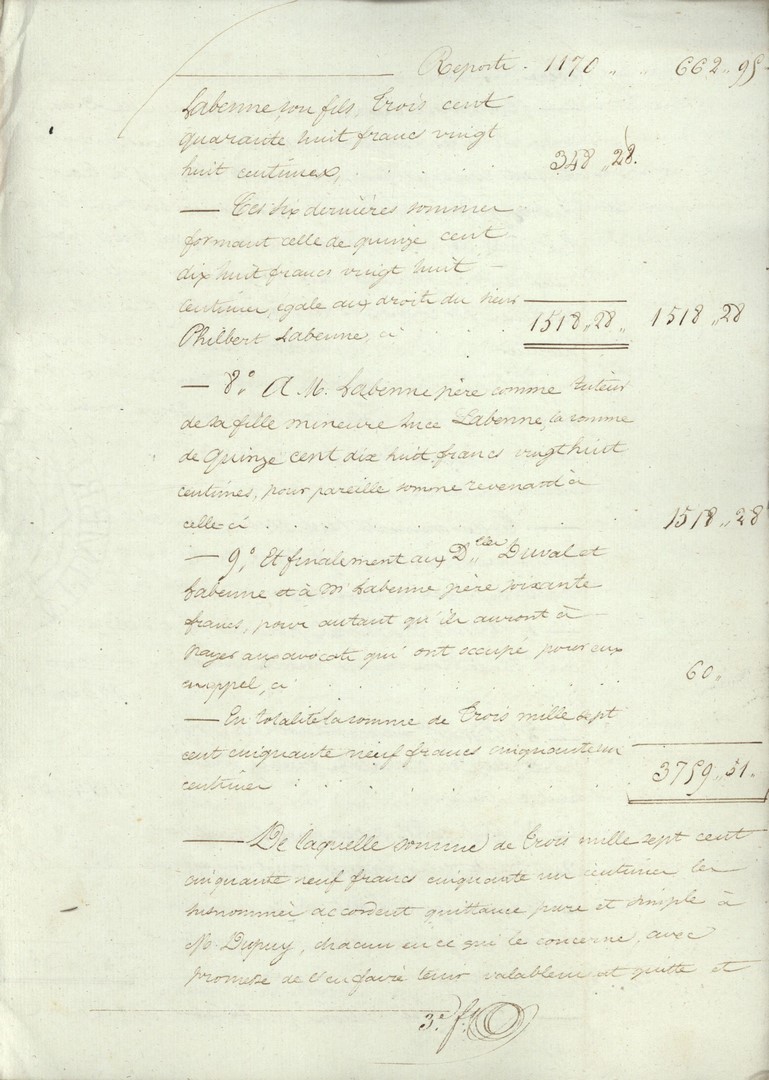 Reporte . 1170 „ „ 662 „ 95
Labenne son fils, trois cent
quarante huit francs vingt
huit centimes, . . . 348 „ 28.
— Ces six dernières sommes
formant celle de quinze cent
dix huit francs vingt huit
centimes, egale aux droits du sieur
Philbert Labenne, ci . . 1518 „ 28 „ 1518 „ 28
— 8.° A M. Labenne père comme tuteur
de sa fille mineure Luce Labenne, la somme
de quinze cent dix huit francs vingt huit
centimes, pour pareille somme revenant à
celle-ci . . . . . 1518 „ 28
— 9.° Et finalement aux D.lles Duval et
Labenne et à Mr Labenne père soixante
francs, pour autant qu'ils auront à
payer aux avocats qui ont occupé pour eux
en appel, ci . . . . . 60 „
— En totalité la somme de trois mille sept
cent cinquante neuf francs cinquante un
centimes . . . . . 3759 „ 51.
— De laquelle somme de trois mille sept cent
cinquante neuf francs cinquante un centimes les
susnommés accordent quittance pure et simple à
M. Dupuy, chacun en ce qui le concerne, avec
promesse de l'en faire tenir valablement quitte et
3.e f.